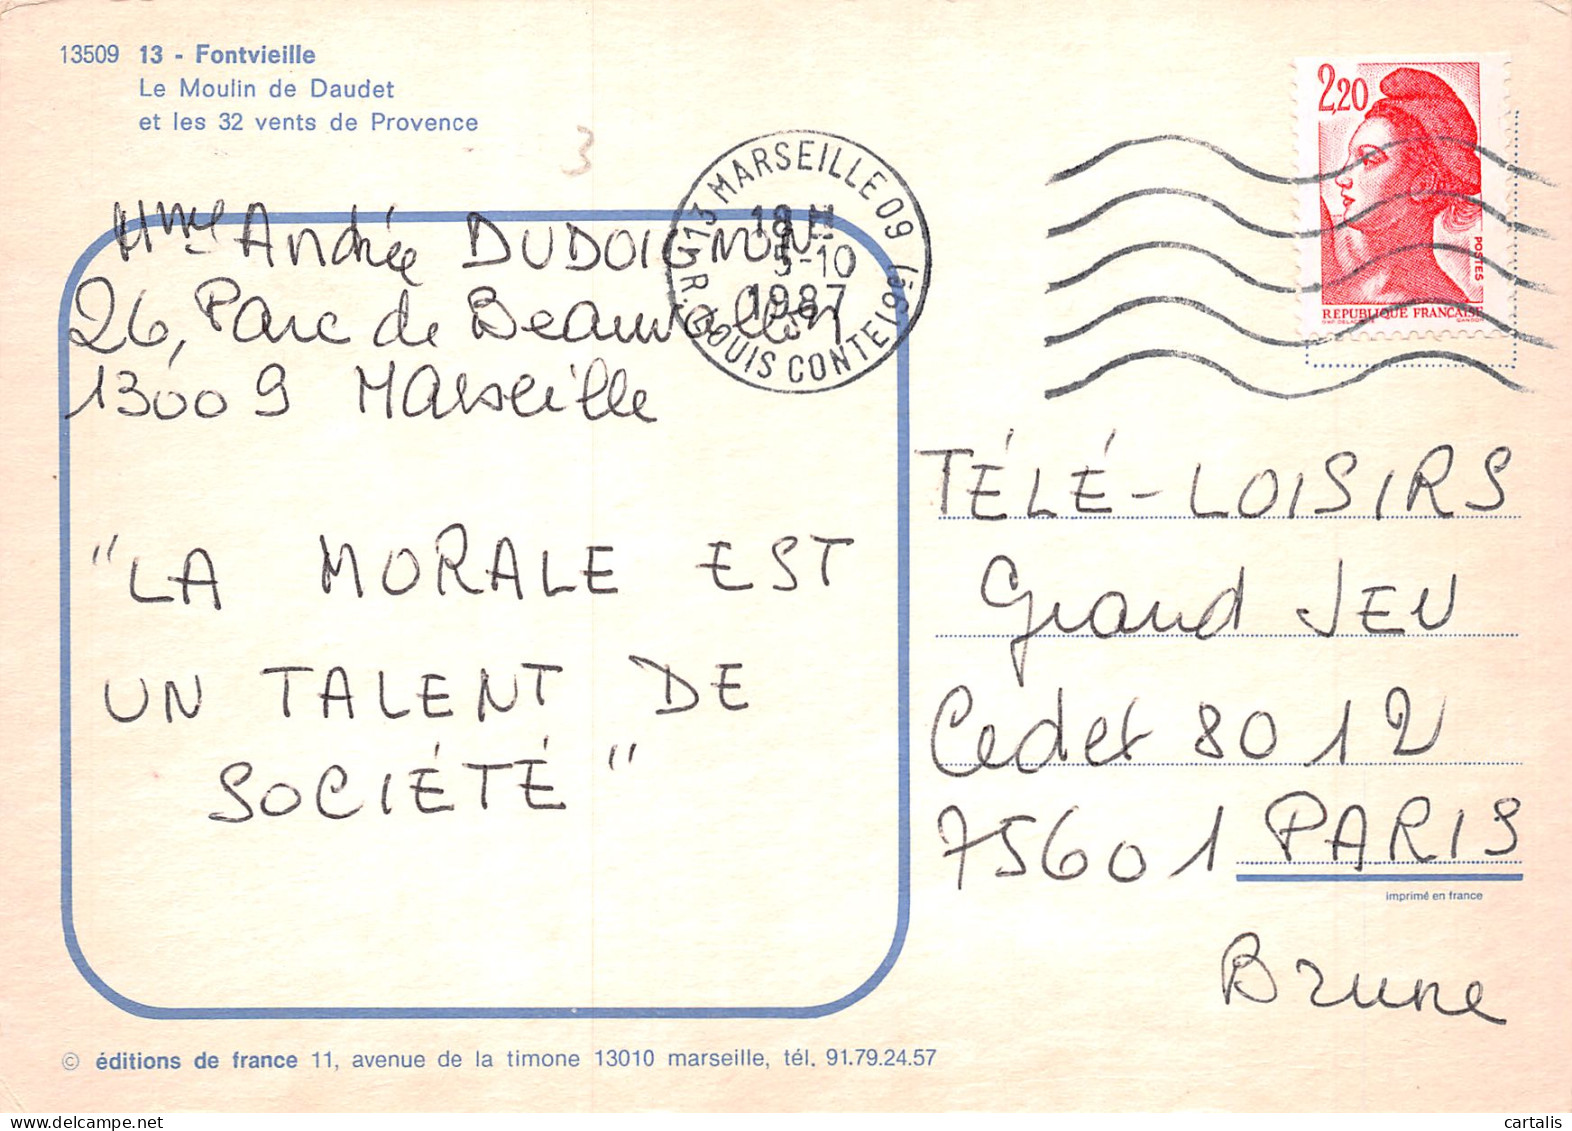 13509 13 - Fontvieille
Le Moulin de Daudet
et les 32 vents de Provence
3
Mme Andrée DUDOIGNON
26, Parc de Beauvallon
13009 Marseille
"LA MORALE EST
UN TALENT DE
SOCIÉTÉ"
13 MARSEILLE 09
18 H
5-10
1987
R. LOUIS CONTE (9e)
2,20
POSTES
REPUBLIQUE FRANÇAISE
TÉLÉ-LOISIRS
Grand JEU
Cedex 8012
75601 PARIS
imprimé en france
Brune
© éditions de france 11, avenue de la timone 13010 marseille, tél. 91.79.24.57
cartalis